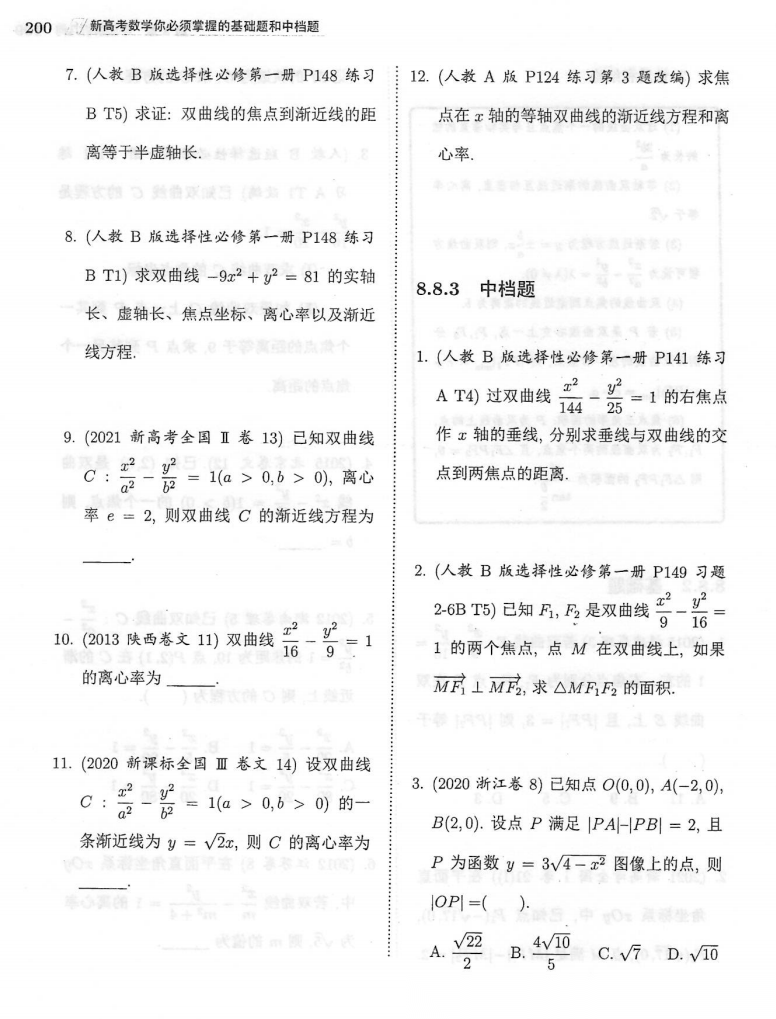 200 新高考数学你必须掌握的基础题和中档题
7. (人教 B 版选择性必修第一册 P148 练习
B T5) 求证: 双曲线的焦点到渐近线的距
离等于半虚轴长.
8. (人教 B 版选择性必修第一册 P148 练习
B T1) 求双曲线 −9x² + y² = 81 的实轴
长、虚轴长、焦点坐标、离心率以及渐近
线方程.
9. (2021 新高考全国 Ⅱ 卷 13) 已知双曲线
C : x²/a² − y²/b² = 1(a > 0, b > 0), 离心
率 e = 2, 则双曲线 C 的渐近线方程为
______.
10. (2013 陕西卷文 11) 双曲线 x²/16 − y²/9 = 1
的离心率为 ______.
11. (2020 新课标全国 Ⅲ 卷文 14) 设双曲线
C : x²/a² − y²/b² = 1(a > 0, b > 0) 的一
条渐近线为 y = √2x, 则 C 的离心率为
______.
12. (人教 A 版 P124 练习第 3 题改编) 求焦
点在 x 轴的等轴双曲线的渐近线方程和离
心率.
8.8.3 中档题
1. (人教 B 版选择性必修第一册 P141 练习
A T4) 过双曲线 x²/144 − y²/25 = 1 的右焦点
作 x 轴的垂线, 分别求垂线与双曲线的交
点到两焦点的距离.
2. (人教 B 版选择性必修第一册 P149 习题
2-6B T5) 已知 F₁, F₂ 是双曲线 x²/9 − y²/16 =
1 的两个焦点, 点 M 在双曲线上, 如果
MF₁ ⊥ MF₂, 求 △MF₁F₂ 的面积.
3. (2020 浙江卷 8) 已知点 O(0,0), A(−2,0),
B(2,0). 设点 P 满足 |PA|−|PB| = 2, 且
P 为函数 y = 3√(4 − x²) 图像上的点, 则
|OP| =( ).
A. √22/2 B. 4√10/5 C. √7 D. √10